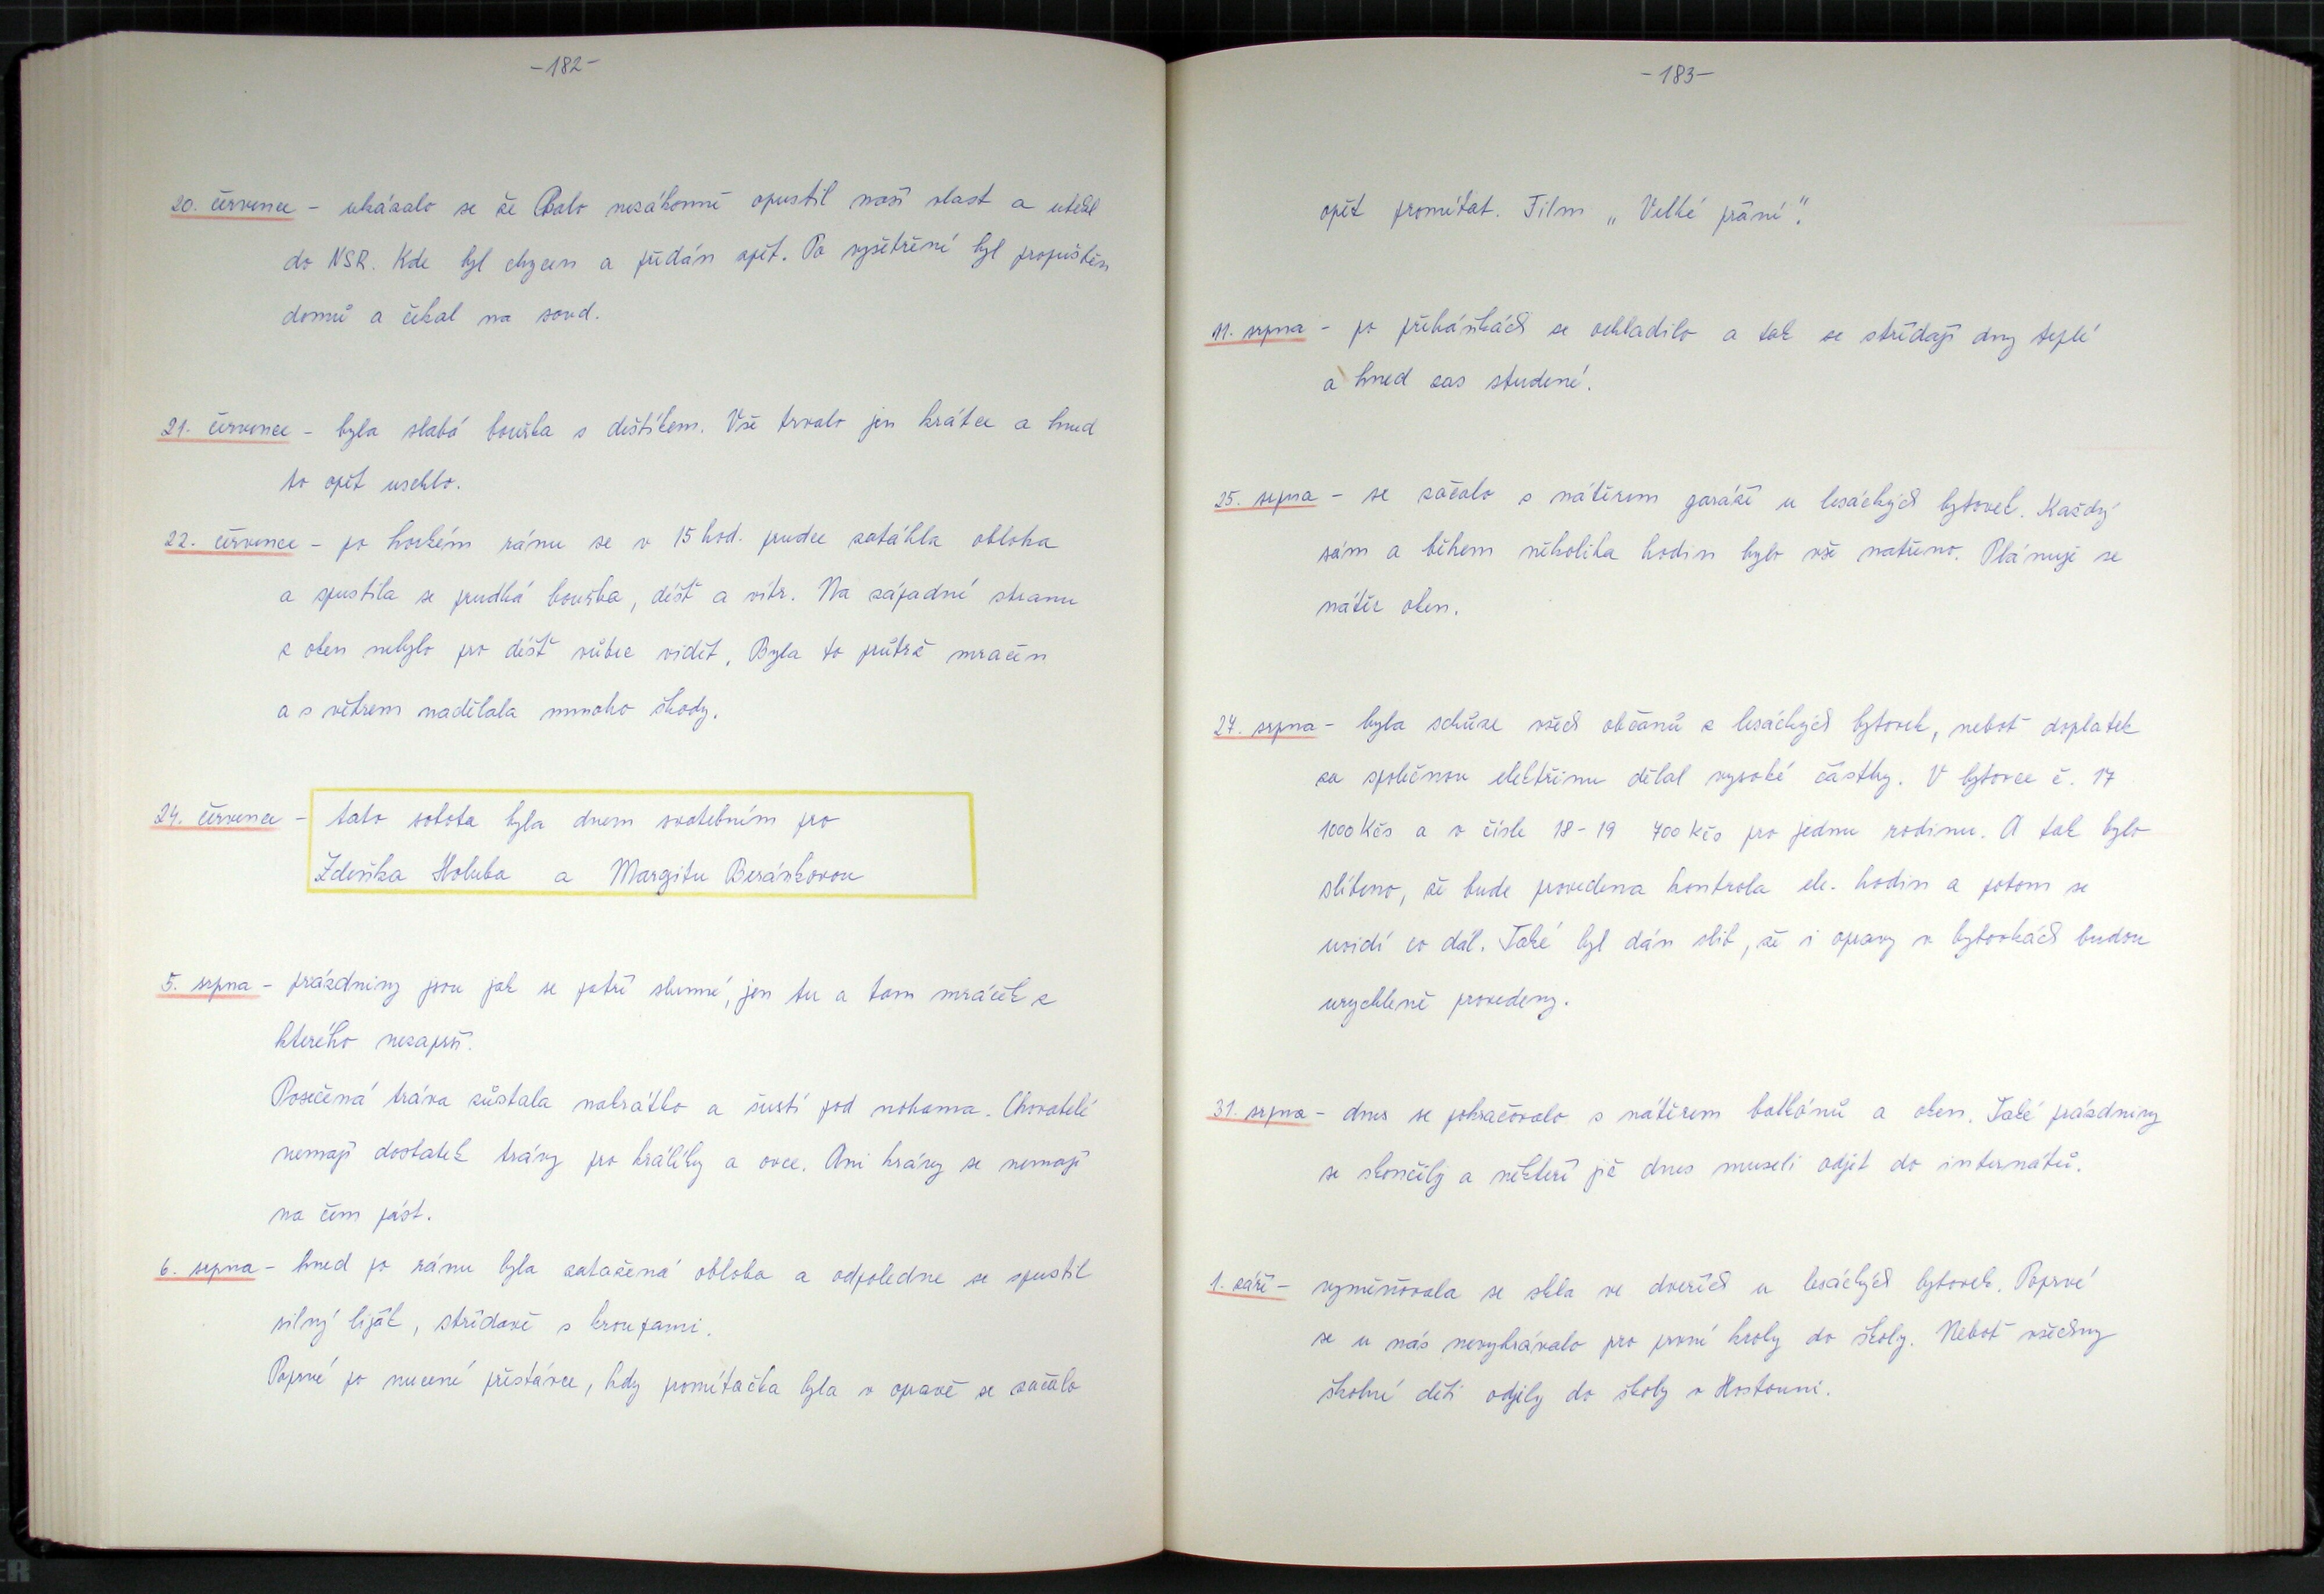 -182-
20. července - ukázalo se že Balo nezákonně opustil naší vlast a utekl
do NSR. Kde byl chycen a předán zpět. Po vyšetření byl propuštěn
domů a čekal na soud.
21. července - byla slabá bouřka s deštíkem. Vše trvalo jen krátce a hned
to opět uschlo.
22. července - po horkém ránu se v 15 hod. prudce zatáhla obloha
a spustila se prudká bouřka, déšť a vítr. Na západní stranu
z oken nebylo pro déšť vůbec vidět. Byla to průtrž mračen
a s větrem nadělala mnoho škody.
24. července - tato sobota byla dnem svatebním pro
Zdeňka Holuba a Margitu Beránkovou
5. srpna - prázdniny jsou jak se patří slunné, jen tu a tam mráček z
kterého nezaprší.
Posečená tráva zůstala nakrátko a šustí pod nohama. Chovatelé
nemají dostatek trávy pro králíky a ovce. Ani krávy se nemají
na čem pást.
6. srpna - hned po ránu byla zatažená obloha a odpoledne se spustil
silný liják, střídavě s kroupami.
Poprvé po nucené přestávce, kdy promítačka byla v opravě se začalo
-183-
opět promítat. Film „Velké přání".
11. srpna - po přeháňkách se ochladilo a tak se střídají dny teplé
a hned zas studené.
25. srpna - se začalo s nátěrem garáží u lesáckých bytovek. Každý
sám a během několika hodin bylo vše natřeno. Plánuje se
nátěr oken.
27. srpna - byla schůze všech občanů z lesáckých bytovek, neboť doplatek
za společnou elektřinu dělal vysoké částky. V bytovce č. 17
1000 Kčs a v čísle 18-19 700 Kčs pro jednu rodinu. A tak bylo
slíbeno, že bude provedena kontrola ele. hodin a potom se
uvidí co dál. Také byl dán slib, že i opravy v bytovkách budou
urychleně provedeny.
31. srpna - dnes se pokračovalo s nátěrem balkónů a oken. Také prázdniny
se skončily a někteří již dnes museli odjet do internátů.
1. září - vyměňovala se skla ve dveřích u lesáckých bytovek. Poprvé
se u nás nevyhrávalo pro první kroky do školy. Neboť všechny
školní děti odjely do školy v Hostouni.